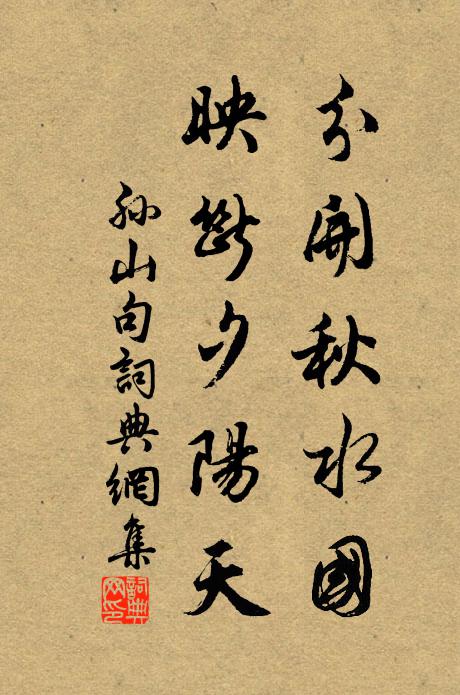 分開秋水國
映斷夕陽天
孫山句詞典網集
詞典網印